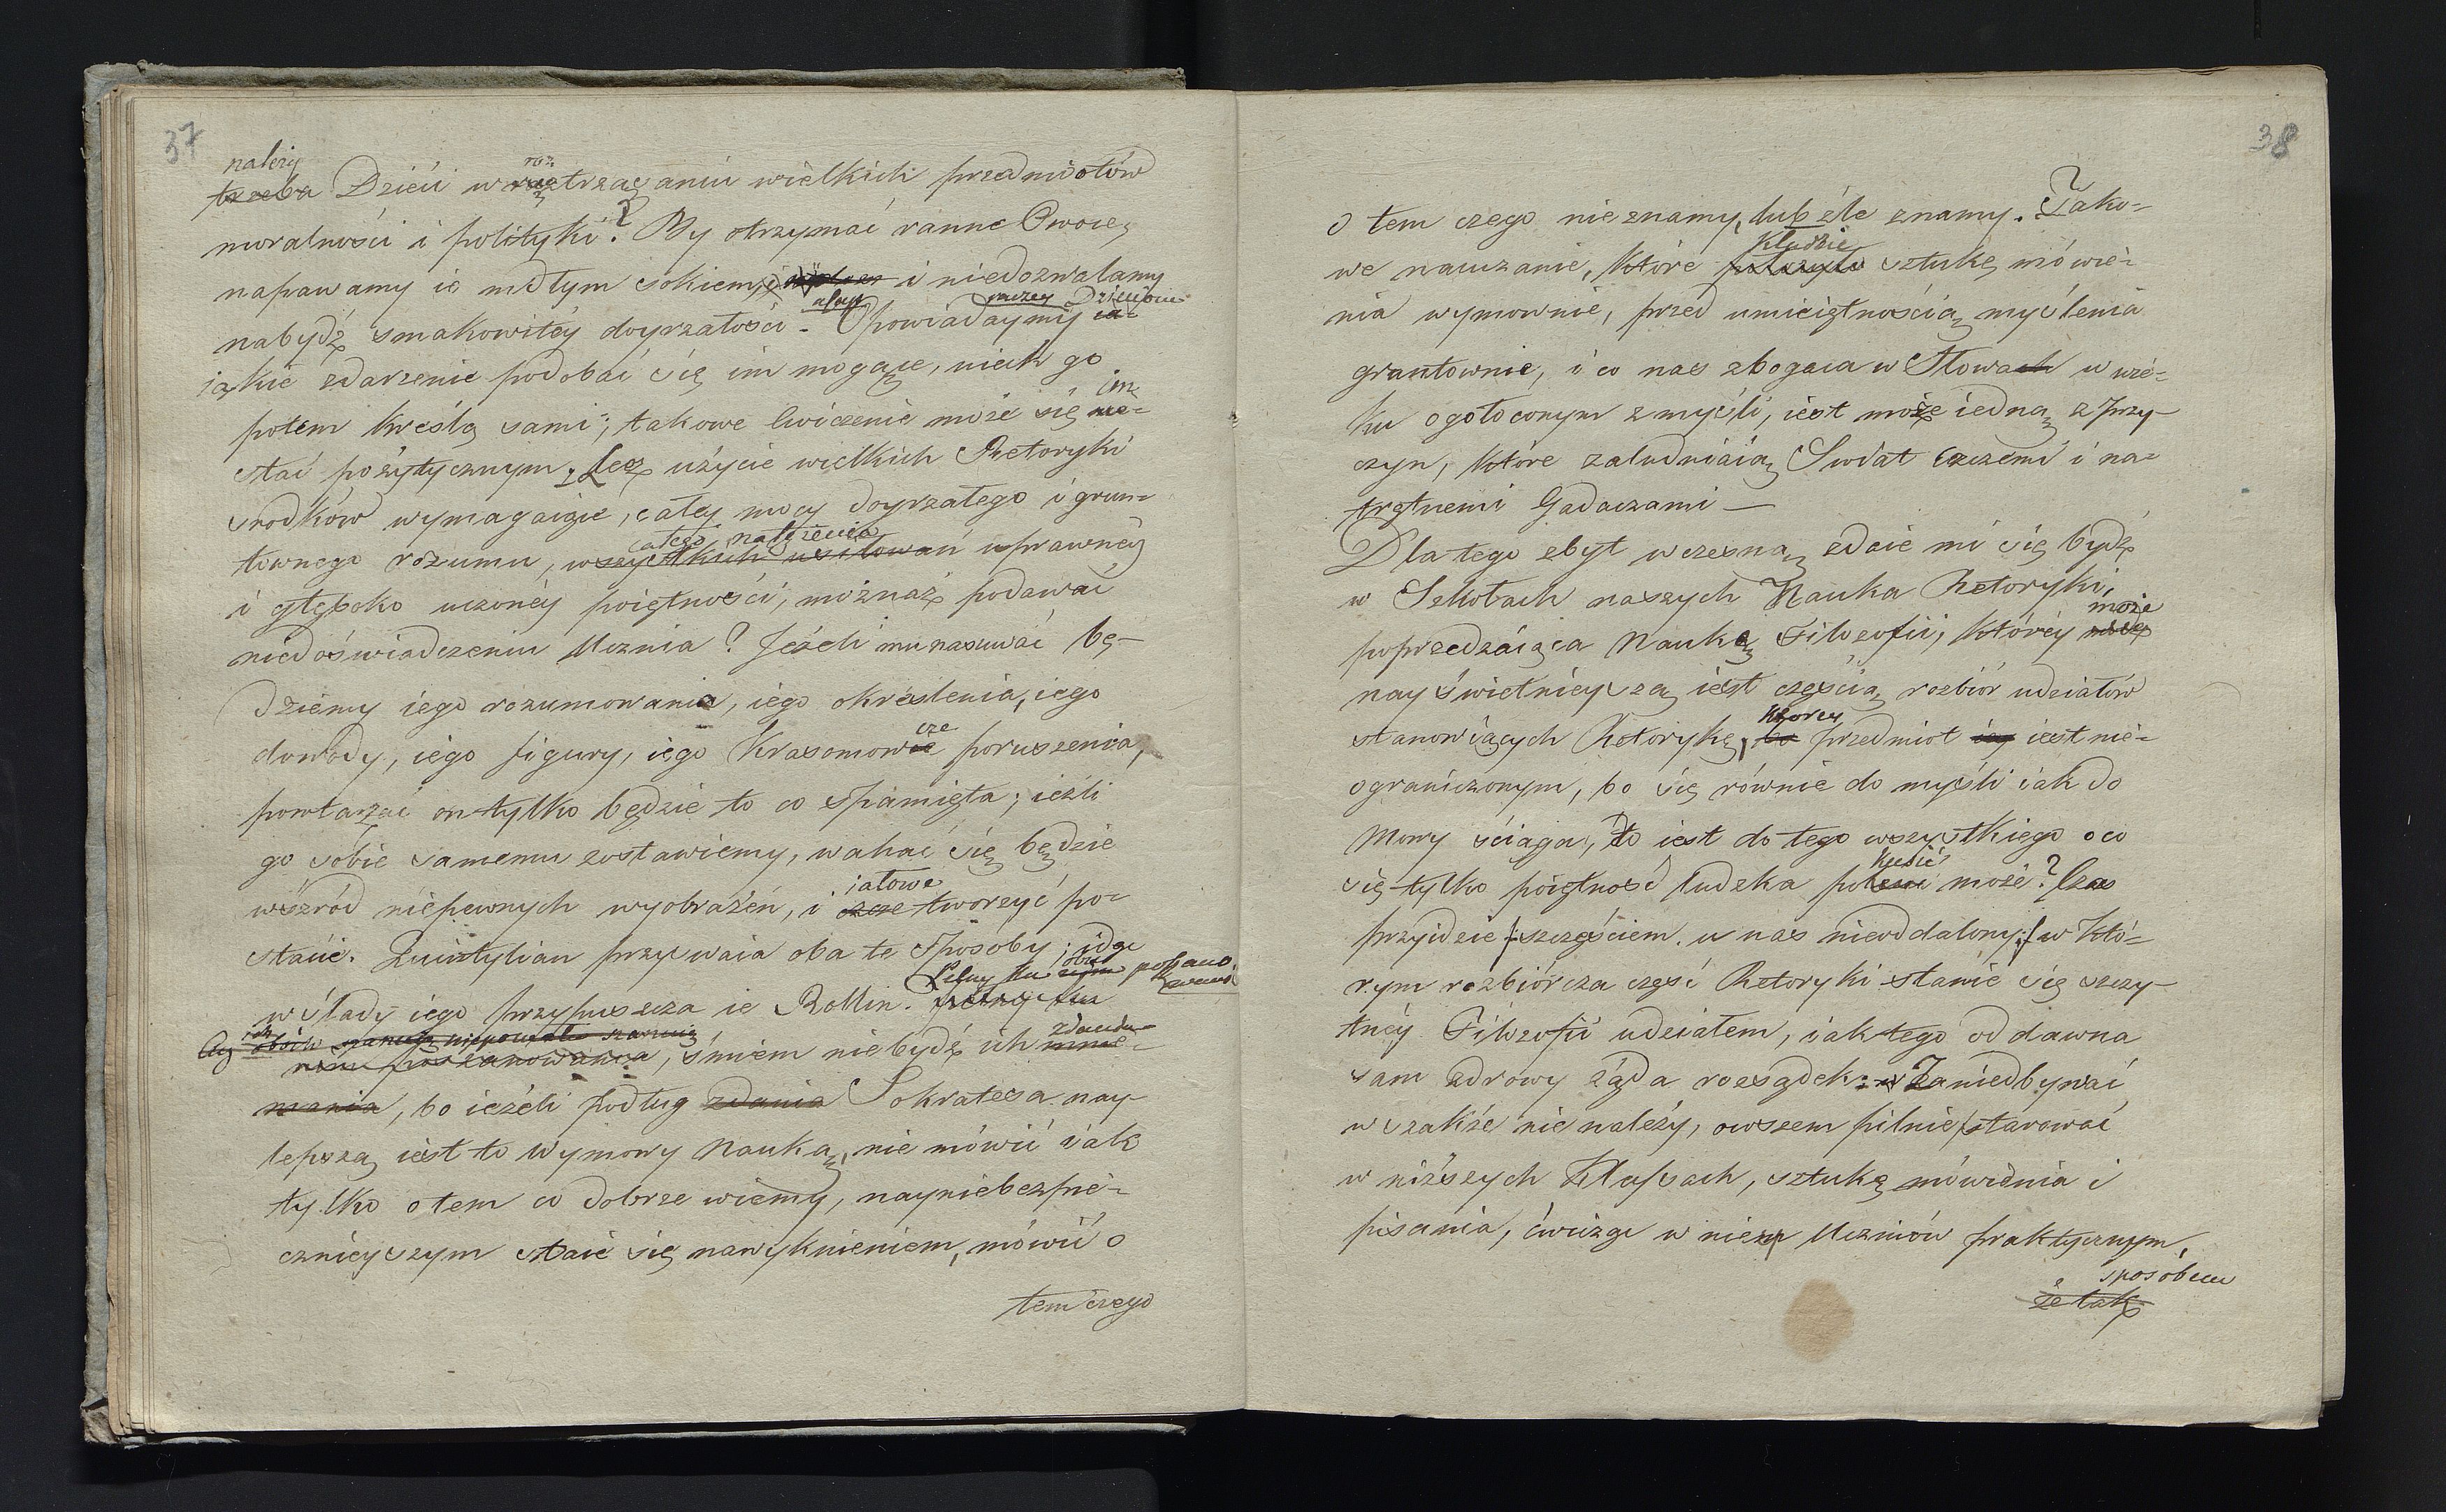 37
należy
trzeba Dzieci w roztrząsaniu wielkich przedmiotów
moralności i polityki? By otrzymać ranne Owoce,
napawamy ie mdłym sokiem, i niedozwalamy
nabydź smakowitéy doyrzałości. Opowiadaymy raczey Dzieciom
iakie zdarzenie podobać się im mogące, niech go
potem kreślą sami; takowe ćwiczenie może się im
stać pożytycznym. Lecz użycie wielkich Retoryki
srodków wymagaiące, całey mocy doyrzałego i grun-
całego natężenia
townego rozumu, wszystkich usiłowań uprawnéy
i głęboko uczonéy poiętności, możnaż podawać
niedoświadczeniu Ucznia? Jeżeli mu nasuwać bę-
dziemy iego rozumowania, iego okréslenia, iego
dowody, iego figury, iego Krasomowcze poruszenia,
powtarzać on tylko będzie to co spamięta; ieźli
go sobie samemu zostawiemy, wahać się będzie
iałowe
wśzród niepewnych wyobrażeń, i czcze tworzyć po-
staci. Quintylian przyzwaia oba te Sposoby; idąc
w ślady iego przypuszcza ie Rollin. Pełny dla
poszanowania, śmiem niebydź ich zdania
mania, bo ieżeli podług zdania Sokratesa nay-
lepszą iest to Wymowy Nauką, nie mówić iak
tylko o tem co dobrze wiemy, nayniebezpie-
cznieyszym staie się nawyknieniem, mówić o
tem czego
38
o tem czego nieznamy, lub źle znamy. Tako-
kładzie
we nauczanie, które sztukę mówie-
nia wymownie, przed umieiętnością myślenia
gruntownie, i co nas zbogaca w Słowach w wie-
ku ogołoconym z myśli, iest może iedną z przy-
czyn, które zaludniáią Swiat czczemi i na-
trętnemi Gadaczami —
Dla tego zbyt wczesną zdaie mi się bydź
w Szkołach naszych Nauka Retoryki,
może
poprzedzaiąca Naukę Filozofii, któréy
nayświetnieyszą iest częścią rozbiór udziałów
którey
stanowiących Retorykę, bo przedmiot iey iest nie-
ograniczonym, bo się równie do myśli iak do
Mowy ściąga, to iest do tego wszystkiego o co
kusić
się tylko poiętność ludzka może? Czas
przyidzie szczęściem u nas nieoddalony, w któ-
rym rozbiórcza część Retoryki stanie się szczy-
tnéy Filozofii udziałem, iak tego od dawna
sam zdrowy żąda rozsądek: Zaniedbywać
wszakże nie należy, owszem pilnie starować
w niższych Klassach, sztukę mówienia i
pisania, ćwicząc w niey Uczniów praktycznym,
sposobem
że tak